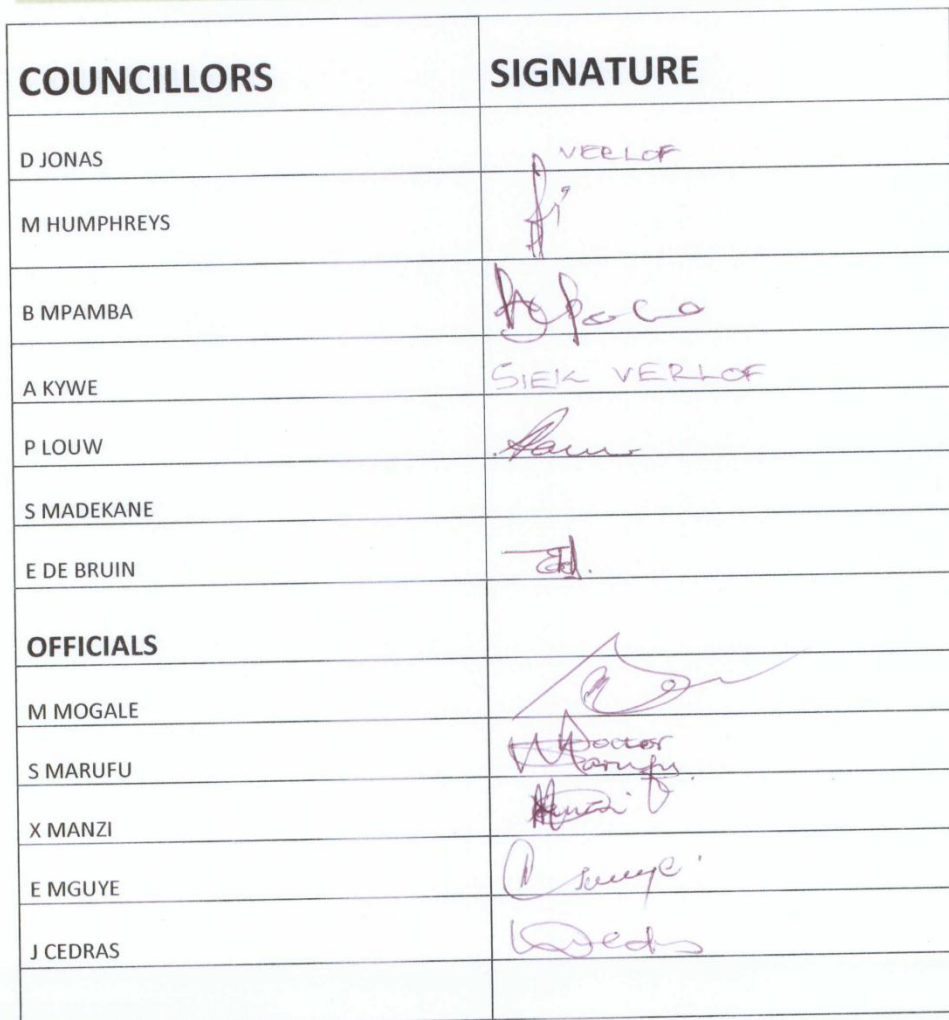 COUNCILLORS SIGNATURE
D JONAS VERLOF
M HUMPHREYS
B MPAMBA
A KYWE SIEK VERLOF
P LOUW
S MADEKANE
E DE BRUIN
OFFICIALS
M MOGALE
S MARUFU Doctor
Marufu
X MANZI Manzi
E MGUYE
J CEDRAS